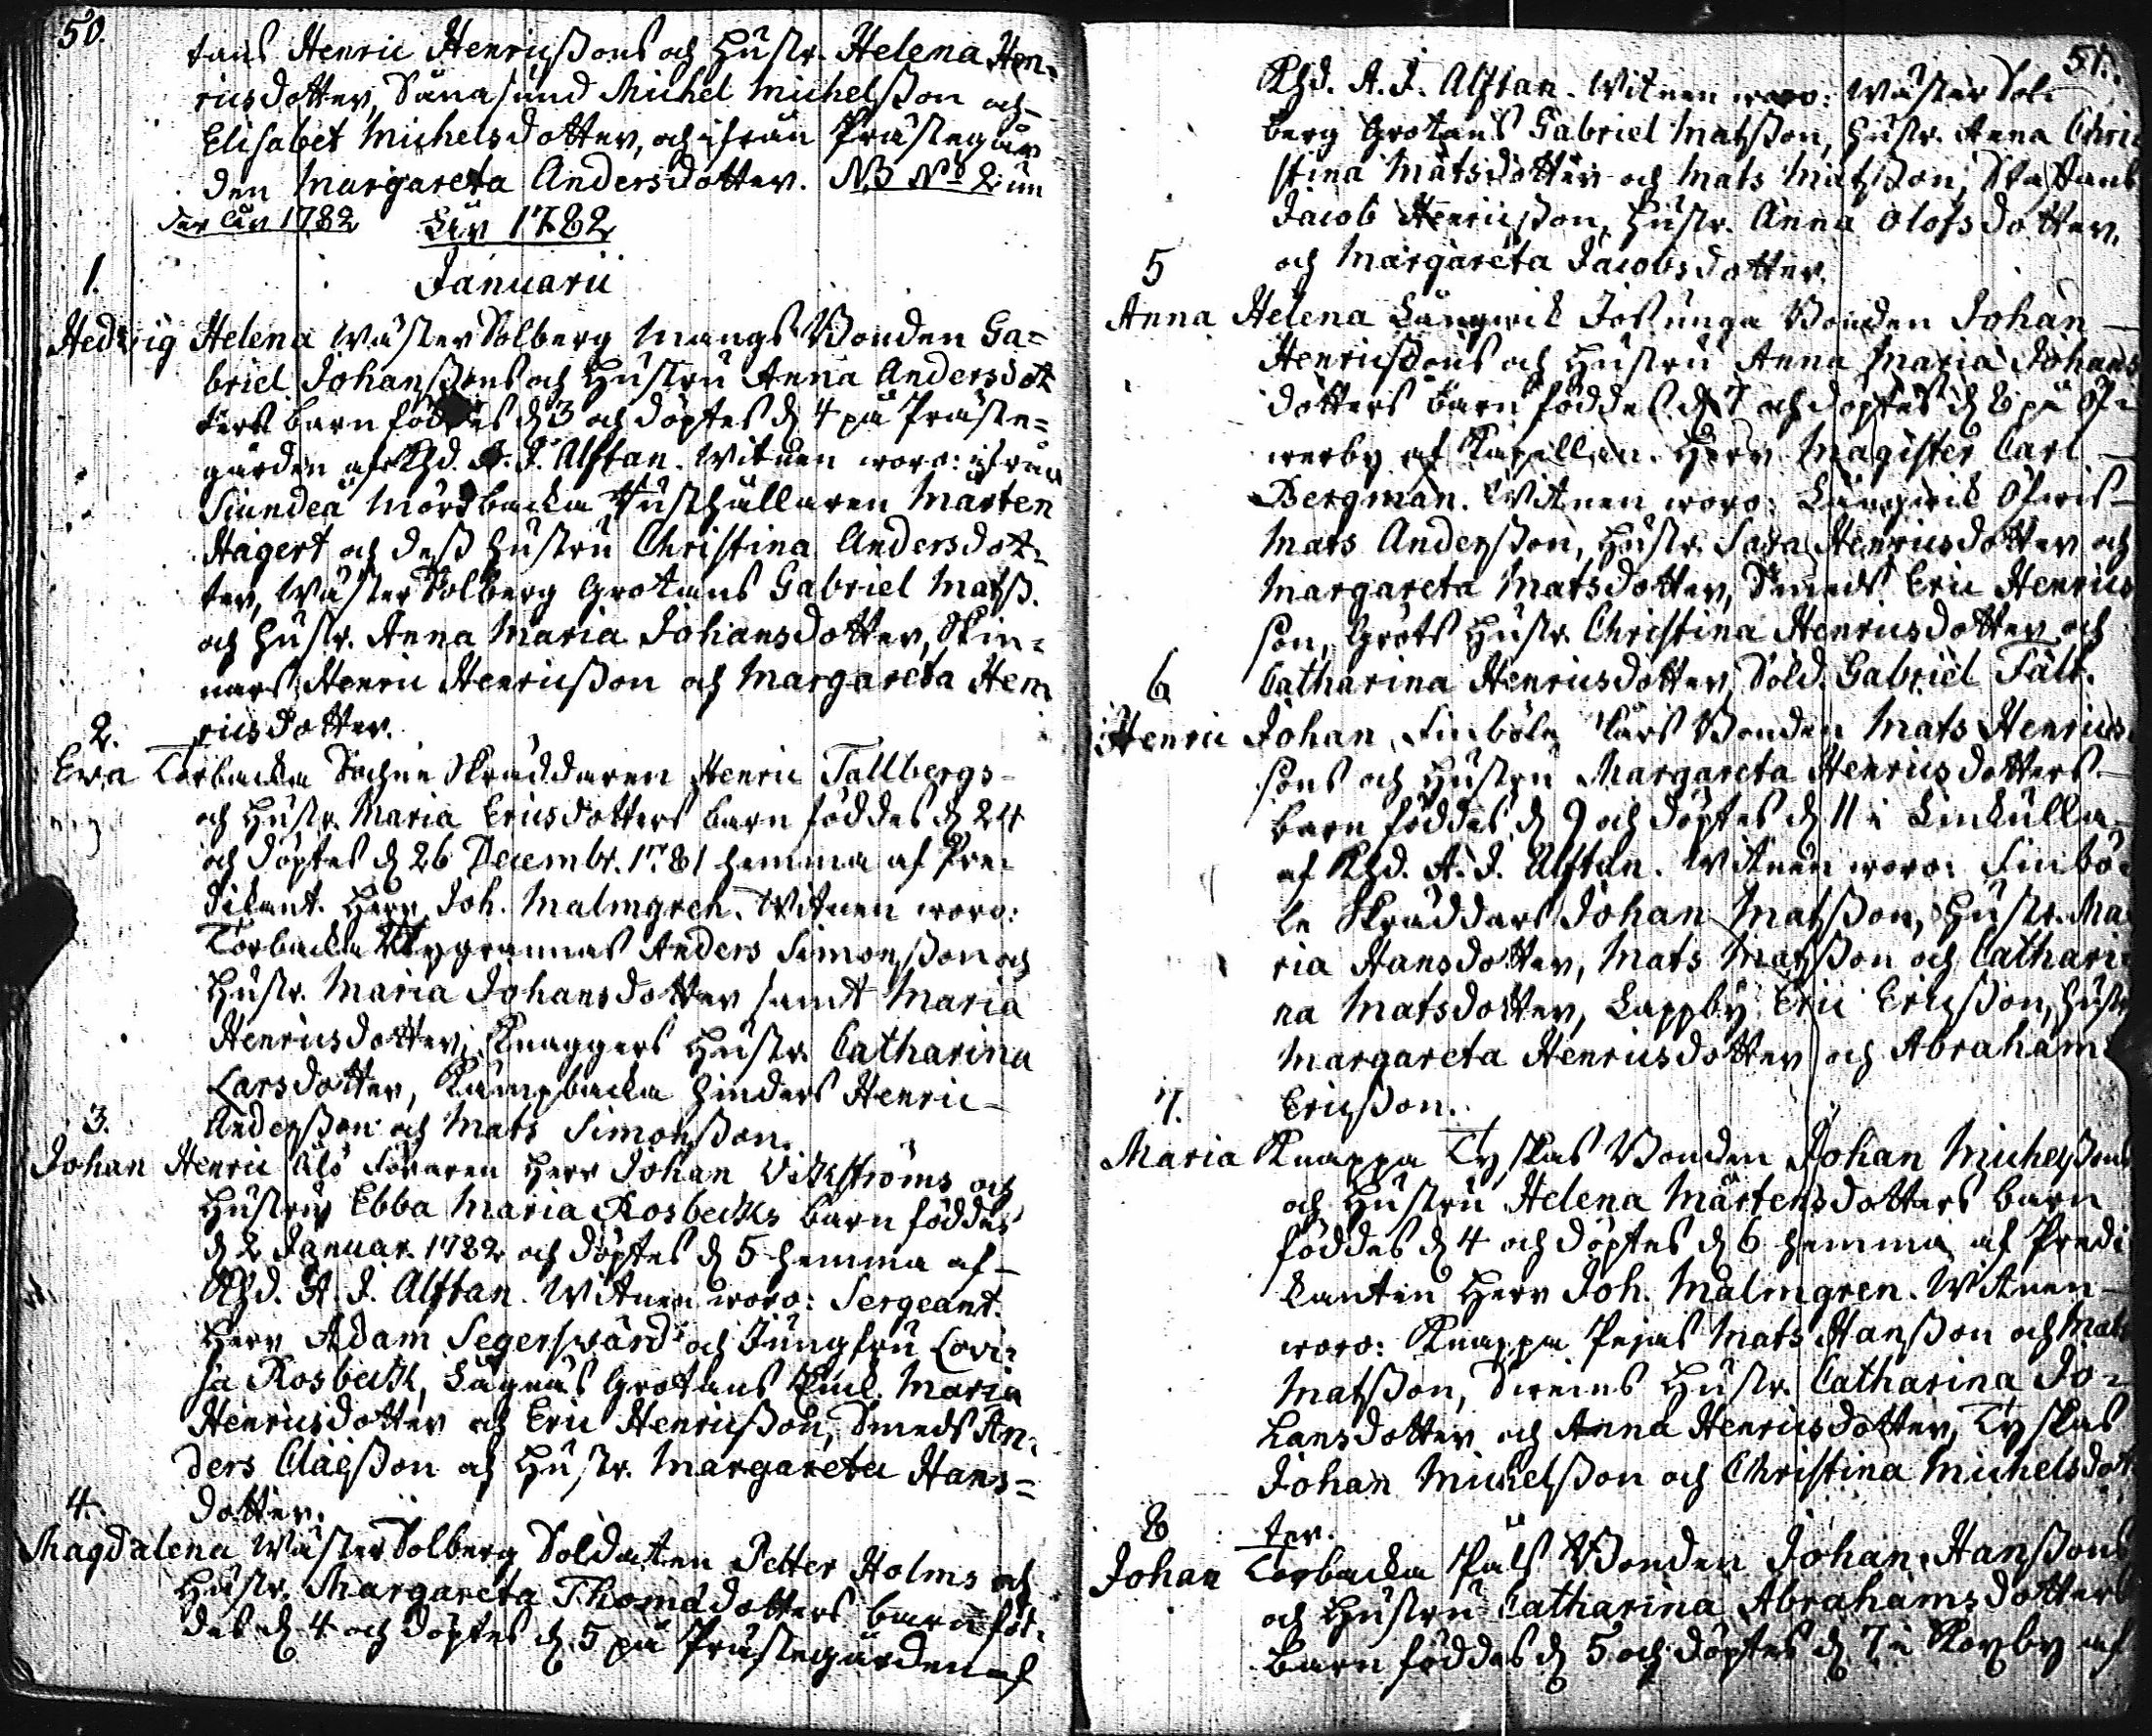 50.
tans Henric Henricßons och Hustr. Helena Hen-
ricsdotter, Sunasund Michel Michelsson och
Elisabet Michelsdotter, och ifrån Prästegår-
den Margareta Andersdotter. NB No 2 un
der År 1782
År 1782
Januarii
1.
Hedvig Helena Wäster Solberg Mangs Bonden Ga-
briel Johanßons och Hustru Anna Andersdot
ters barn föddes d. 3 och döptes d. 4 på Präste-
gården af Khd. A. J. Alftan. Witnen woro: ifrån
Siundeå Mörsbacka Rusthållaren Mårten
Hagert och deß Hustru Christina Andersdot-
ter, Wäster Solberg Grotans Gabriel Matsß.
och Hustr. Anna Maria Johansdotter, Skin-
nars Henric Henricßon och Margareta Hen
ricsdotter.
2.
Eva Torbacka Sockne Skräddaren Henric Tallbergs
och Hustr. Maria Ericsdotters barn föddes d. 24
och döptes d. 26 Decembr. 1781 hemma af Pre-
dikant. Herr Joh. Malmgren. Witnen woro:
Torbacka Anders Simonßon och
Hustr. Maria Johansdotter samt Maria
Henricsdotter, Knaggers Hustr. Catharina
Larsdotter, Kampbacka Hinders Henric
Anderßon och Mats Simonßon.
3.
Johan Henric Älö Föraren Herr Johan Wikströms och
Hustru Ebba Maria Rosbecks barn föddes
d. 2 Januar. 1782 och döptes d. 5 hemma af
Khd. A. J. Alftan. Witnen woro: Sergeant.
Herr Adam Segersvärd och Jungfru Lovi-
sa Rosbeck, Lågnäs Grotans Maria
Henricsdotter och Eric Henricßon, Smeds An-
ders Claesßon och Hustr. Margareta Hans-
dotter.
4.
Magdalena Wäster Solberg Soldaten Petter Holms och
Hustr. Margareta Thomædotters barn föd-
des d. 4 och döptes d. 5 på Prästegården af
51.
Khd. A. J. Alftan. Witnen woro: Wäster Sol-
berg Grotans Gabriel Matsßon, Hustr. Anna Chri
stina Matsdotter och Mats Matsßon,
Jacob Henricßon, Hustr. Anna Olofsdotter,
och Margareta Jacobsdotter.
5
Anna Helena Långwik Jofunga Bonden Johan
Henricßons och Hustru Anna Maria Johans
dotters barn föddes d. 7 och döptes d. 8 på Öf-
werby af Kapellan. Herr Magister Carl
Bergman. Witnen woro: Långwik Öfwis
Mats Anderßon, Hustr. Sara Henricsdotter och
Margareta Matsdotter, Smeds Eric Henrics
son, Grots Hustr. Christina Henricsdotter och
Catharina Henricsdotter, Sold. Gabriel Fält.
6
Henric Johan, Finböle Lars Bonden Mats Henrics-
sons och Hustru Margareta Henricsdotters
barn föddes d. 9 och döptes d. 11 i Linkulla
af Khd. A. J. Alftan. Witnen woro: Finbö-
le Skräddars Johan Matsßon, Hustr. Ma
ria Hansdotter, Mats Matsßon och Cathari-
na Matsdotter, Lappby Eric Ericßon, Hustr
Margareta Henricsdotter och Abraham
Ericßon.
7.
Maria Knappa Tyskas Bonden Johan Michelßons
och Hustru Helena Mårtensdotters barn
föddes d. 4 och döptes d. 6 hemma af Predi
kanten Herr Joh. Malmgren. Witnen
woro: Knappa Pejas Mats Hanßon och Mats
Matsßon, Hustr. Catharina Jo-
hansdotter och Anna Henricsdotter, Tyskas
Johan Michelßon och Christina Michelsdot
ter.
8
Johan Torbacka Påls Bonden Johan Hanßons
och Hustru Catharina Abrahamsdotters
barn föddes d. 5 och döptes d. 7 i Koxby af